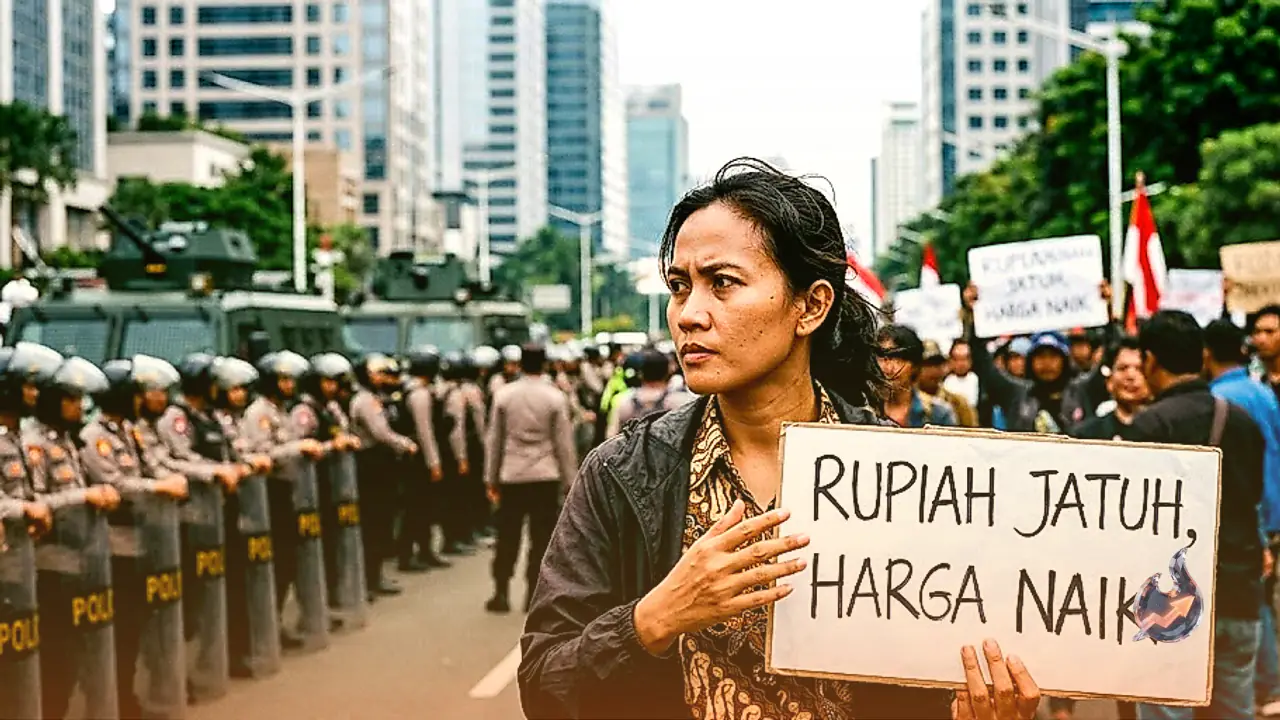 JATUH,
HARGA NAIK
RUPIAH JATUH,
HARGA NAIK
POLI
POLI
POLI
POLI
POLI
POLI